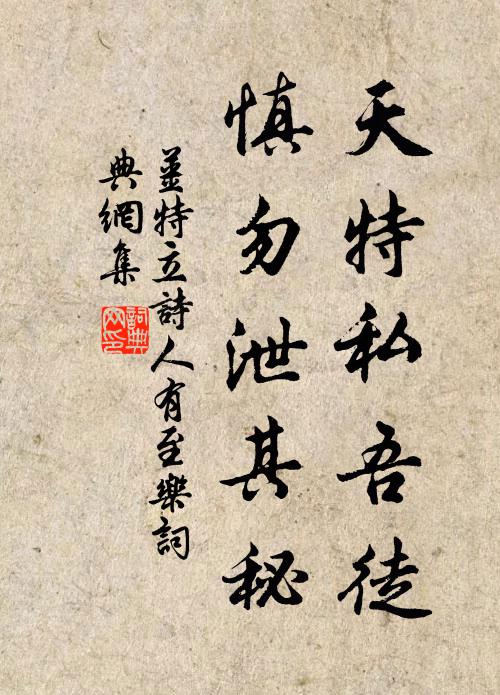 天特私吾徒
慎勿泄其秘
姜特立詩人有至樂詞
典網集
詞典網印